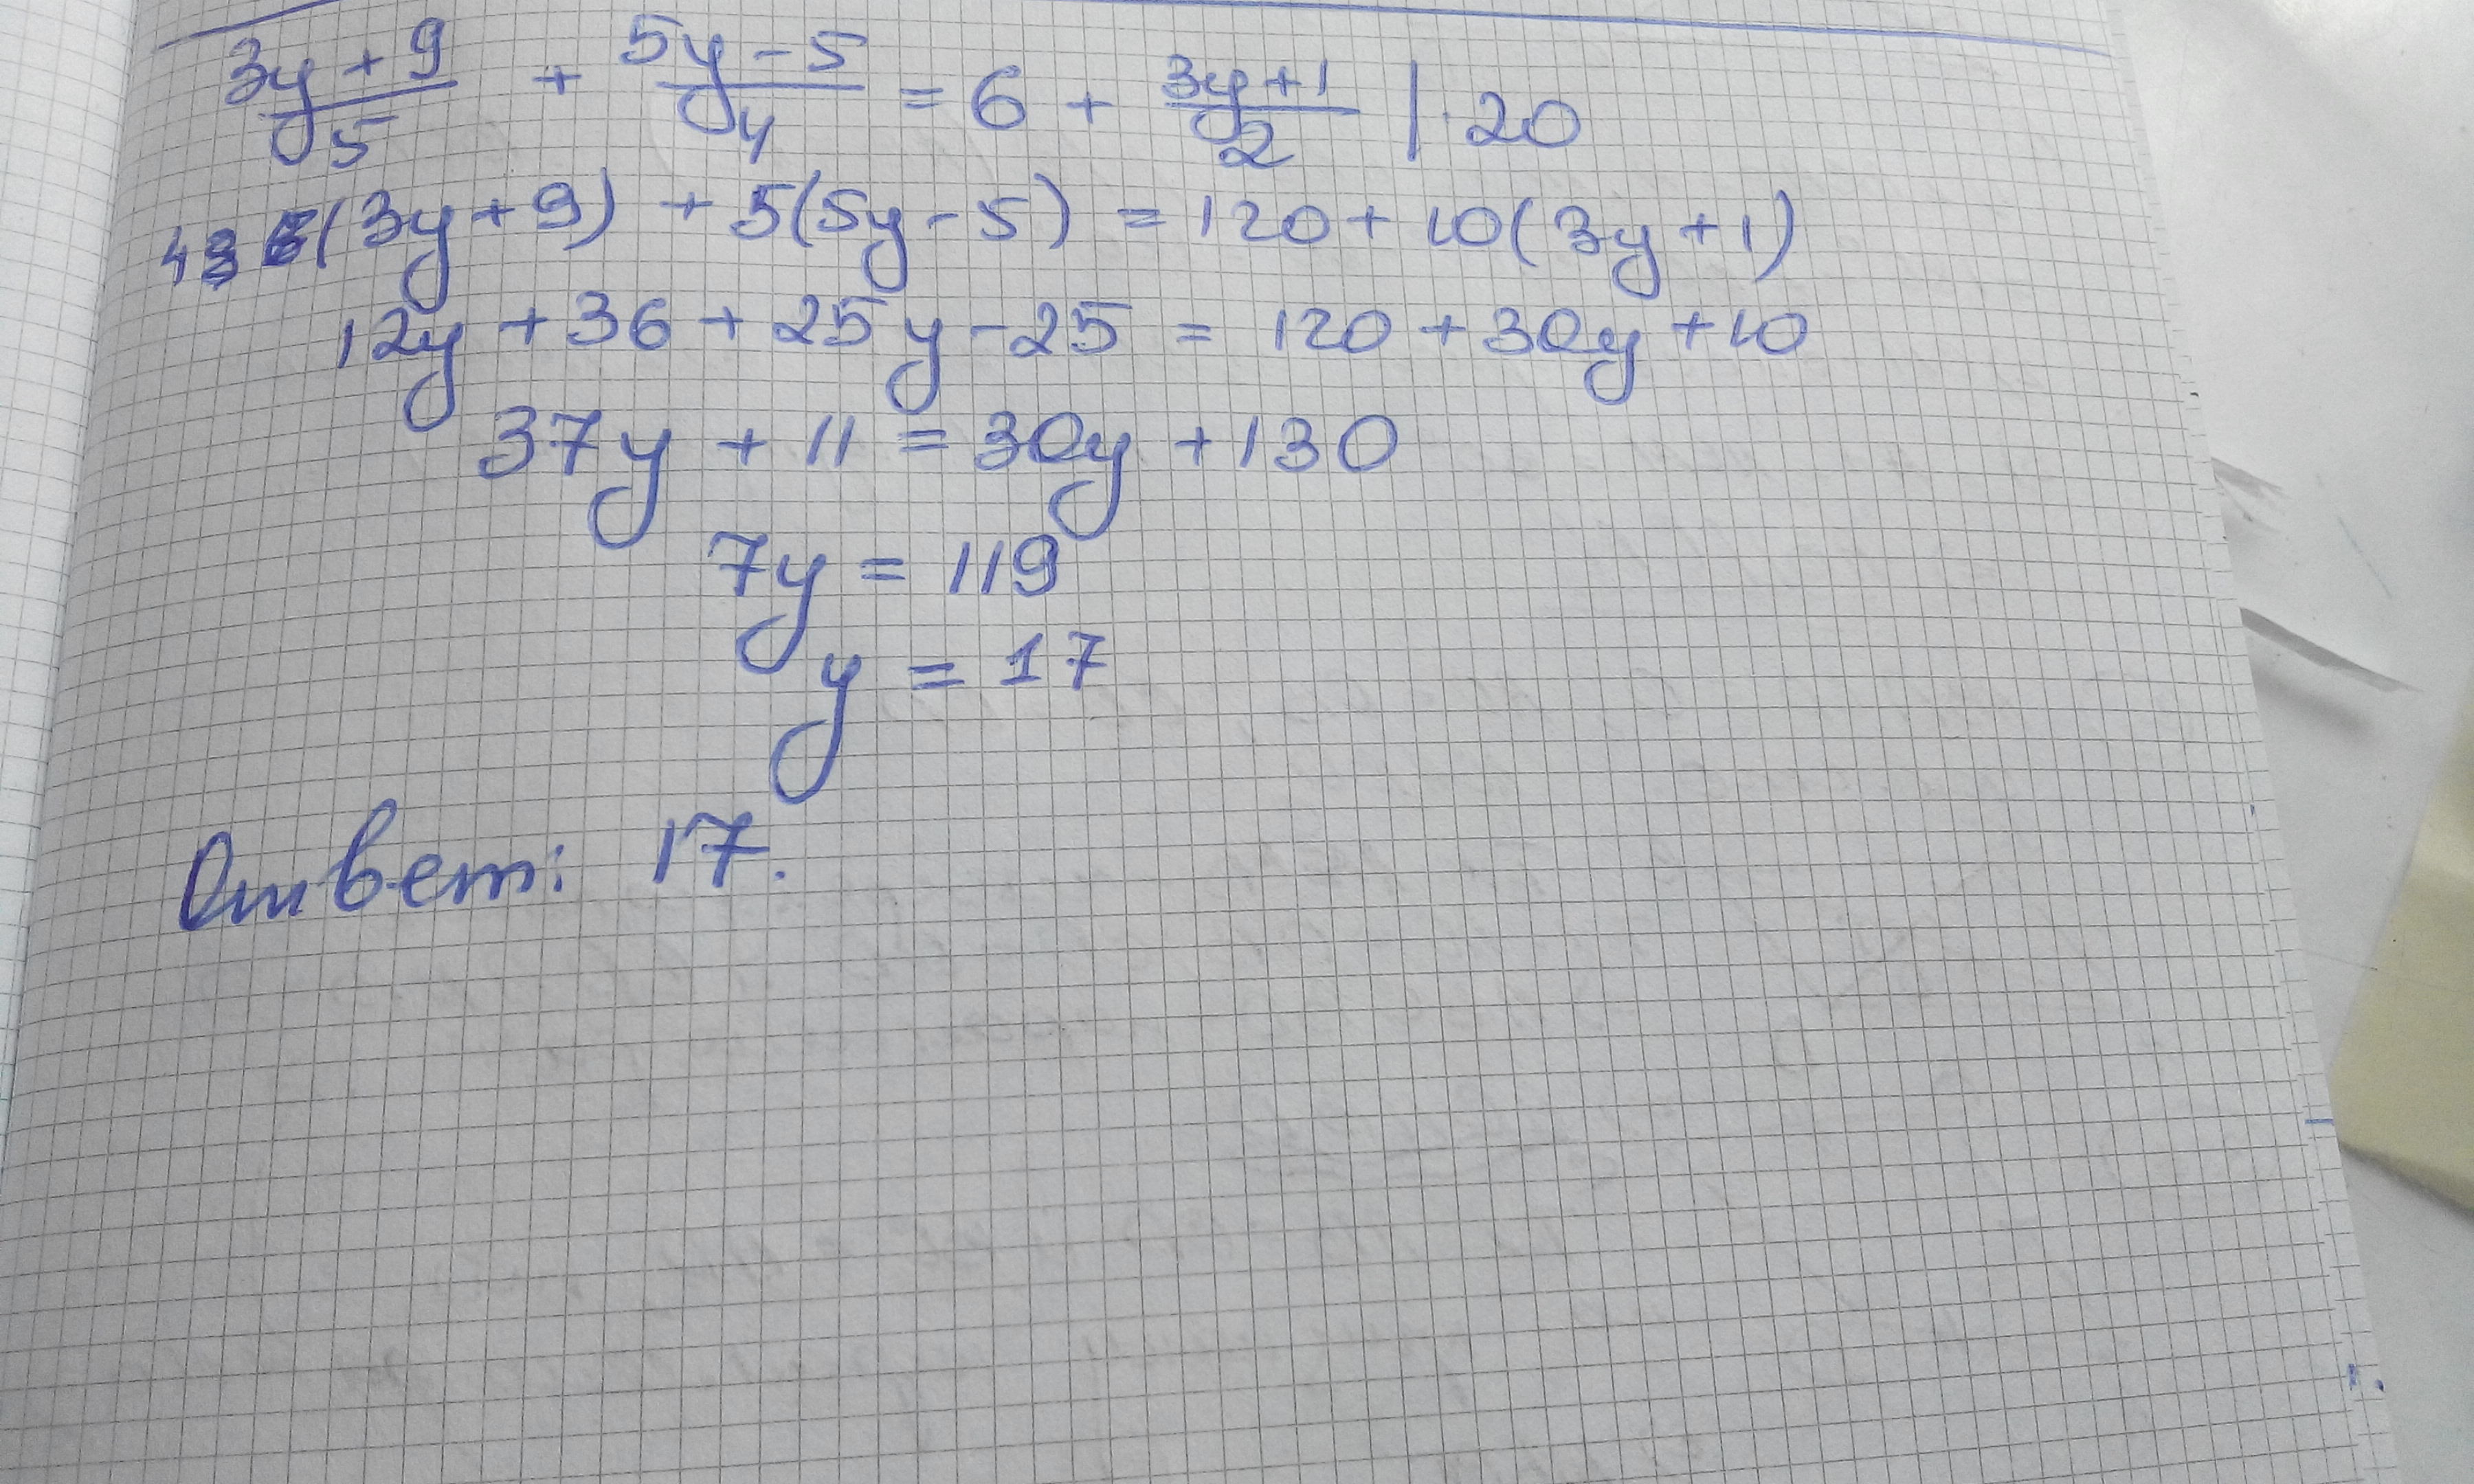 (3y+9)/5 + (5y-5)/4 = 6 + (3y+1)/2 | · 20
4(3y+9) + 5(5y-5) = 120 + 10(3y+1)
12y + 36 + 25y - 25 = 120 + 30y + 10
37y + 11 = 30y + 130
7y = 119
y = 17
Ответ: 17.